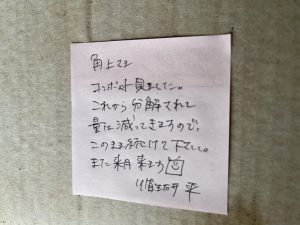 角上さま
コンポスト見ました。
これから分解されて
量は減ってきますので、
このまま続けて下さい。
また来月来ます
循生研 平